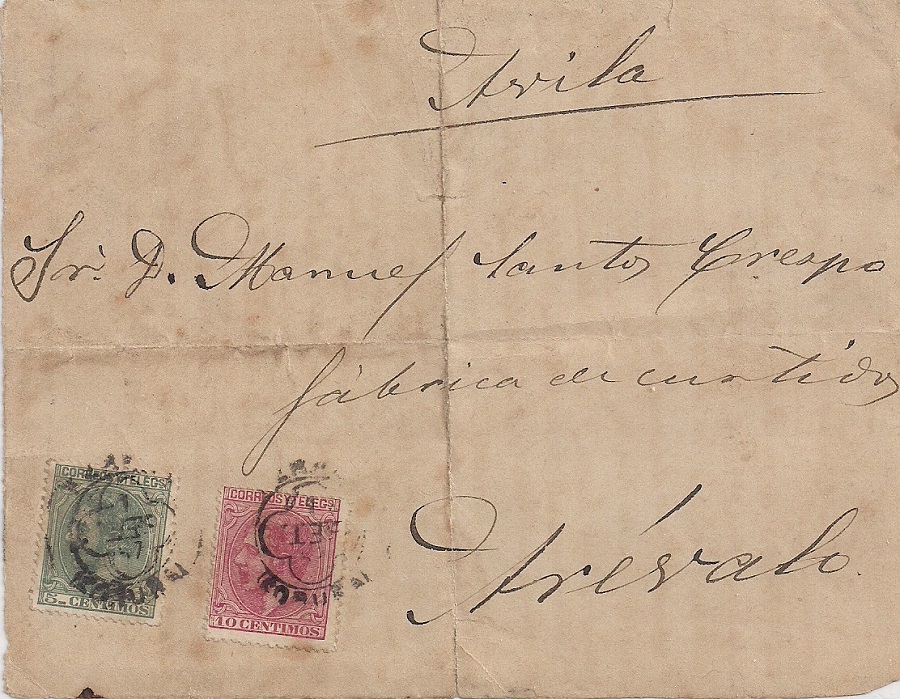 Avila
Sr. D. Manuel Santos Crespo
fábrica de curtidos
Arévalo
CORREOS Y TELEGS
5 CENTIMOS
CORREOS Y TELEGS
10 CENTIMOS